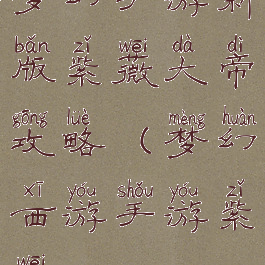 bǎn zǐ wēi dà dì
版紫薇大帝
gōng lüè mèng huàn
攻略（梦幻
xī yóu shǒu yóu zǐ
西游手游紫
wēi